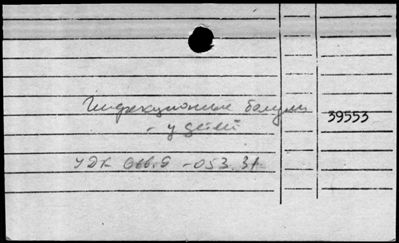 Инфекционные болезни
- у детей
39553
УДК 616.9 -053.31